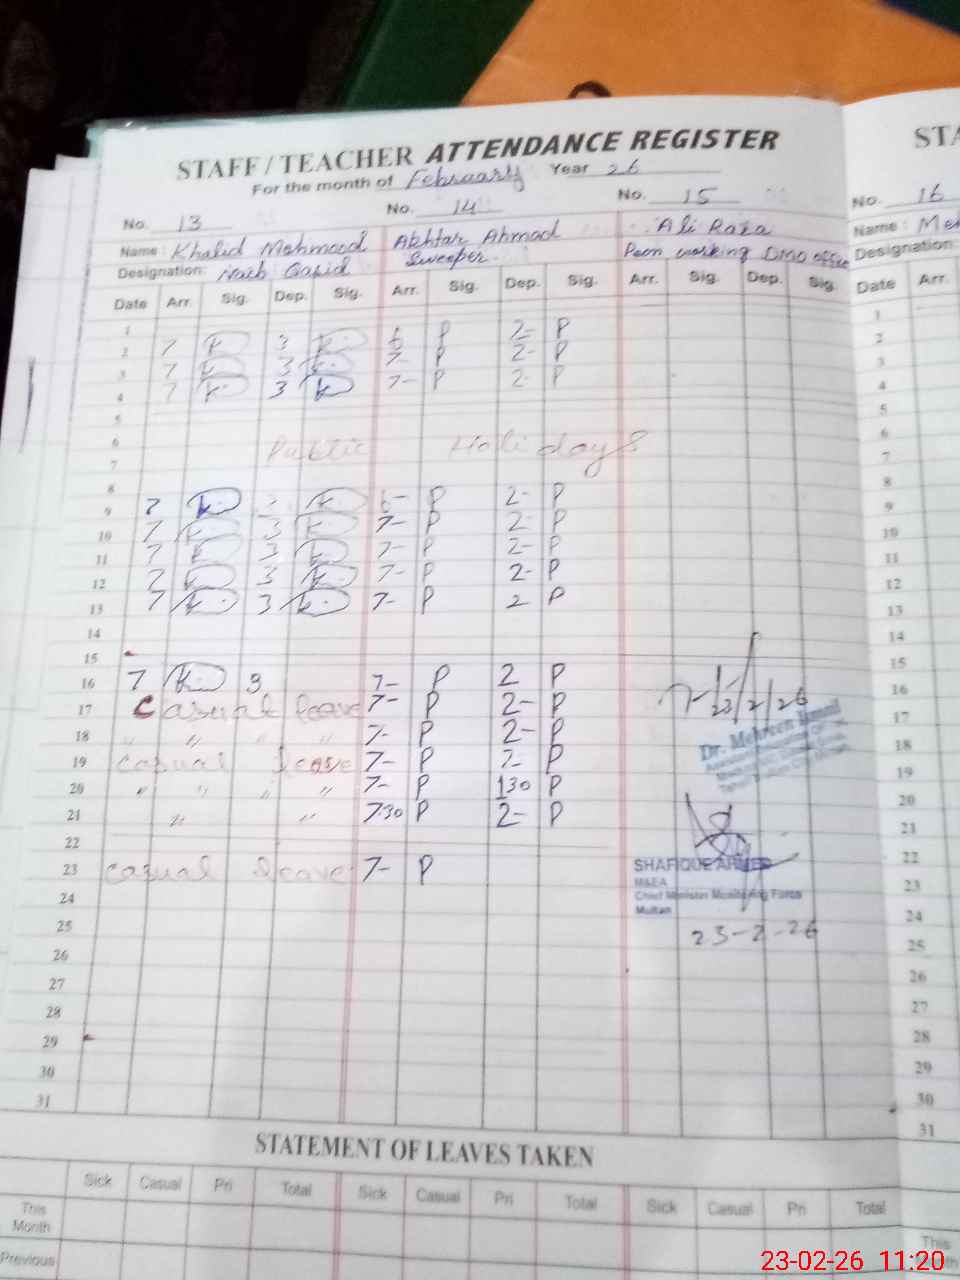 STAFF / TEACHER ATTENDANCE REGISTER
For the month of February Year 26
No. 13 No. 14 No. 15
Name : Khalid Mehmood Akhtar Ahmad Ali Raza
Designation: Naib Qasid Sweeper. Peon working DMO office
Date Arr. Sig. Dep. Sig. Arr. Sig. Dep. Sig. Arr. Sig. Dep. Sig.
1
2 7 K 3 K 6 P 2- P
3 7 K 3 K 7- P 2- P
4 7 K 3 K 7- P 2- P
5
6 Public Holidays
7
8
9 7 K K 6- P 2- P
10 7 K 3 K 7- P 2- P
11 7 K 3 K 7- P 2- P
12 7 K 3 K 7- P 2- P
13 7 K 3 K 7- P 2 P
14
15
16 7 K 3 7- P 2 P
17 Casual leave 7- P 2- P
18 " " " " 7- P 2- P
19 Casual leave 7- P 2- P
20 " " " " 7- P 130 P
21 " " 7.30 P 2- P
22
23 Casual leave 7- P
24
25
26
27
28
29
30
31
23/2/26
Dr. Mehreen
SHAFIQUE AHMED
M&EA
Chief Minister Monitoring Force
Multan
23-2-26
STATEMENT OF LEAVES TAKEN
Sick Casual Pri Total Sick Casual Pri Total Sick Casual Pri Total
This
Month
Previous
STA
No. 16
Name : Meh
Designation:
Date Arr.
1
2
3
4
5
6
7
8
9
10
11
12
13
14
15
16
17
18
19
20
21
22
23
24
25
26
27
28
29
30
31
This
23-02-26 11:20